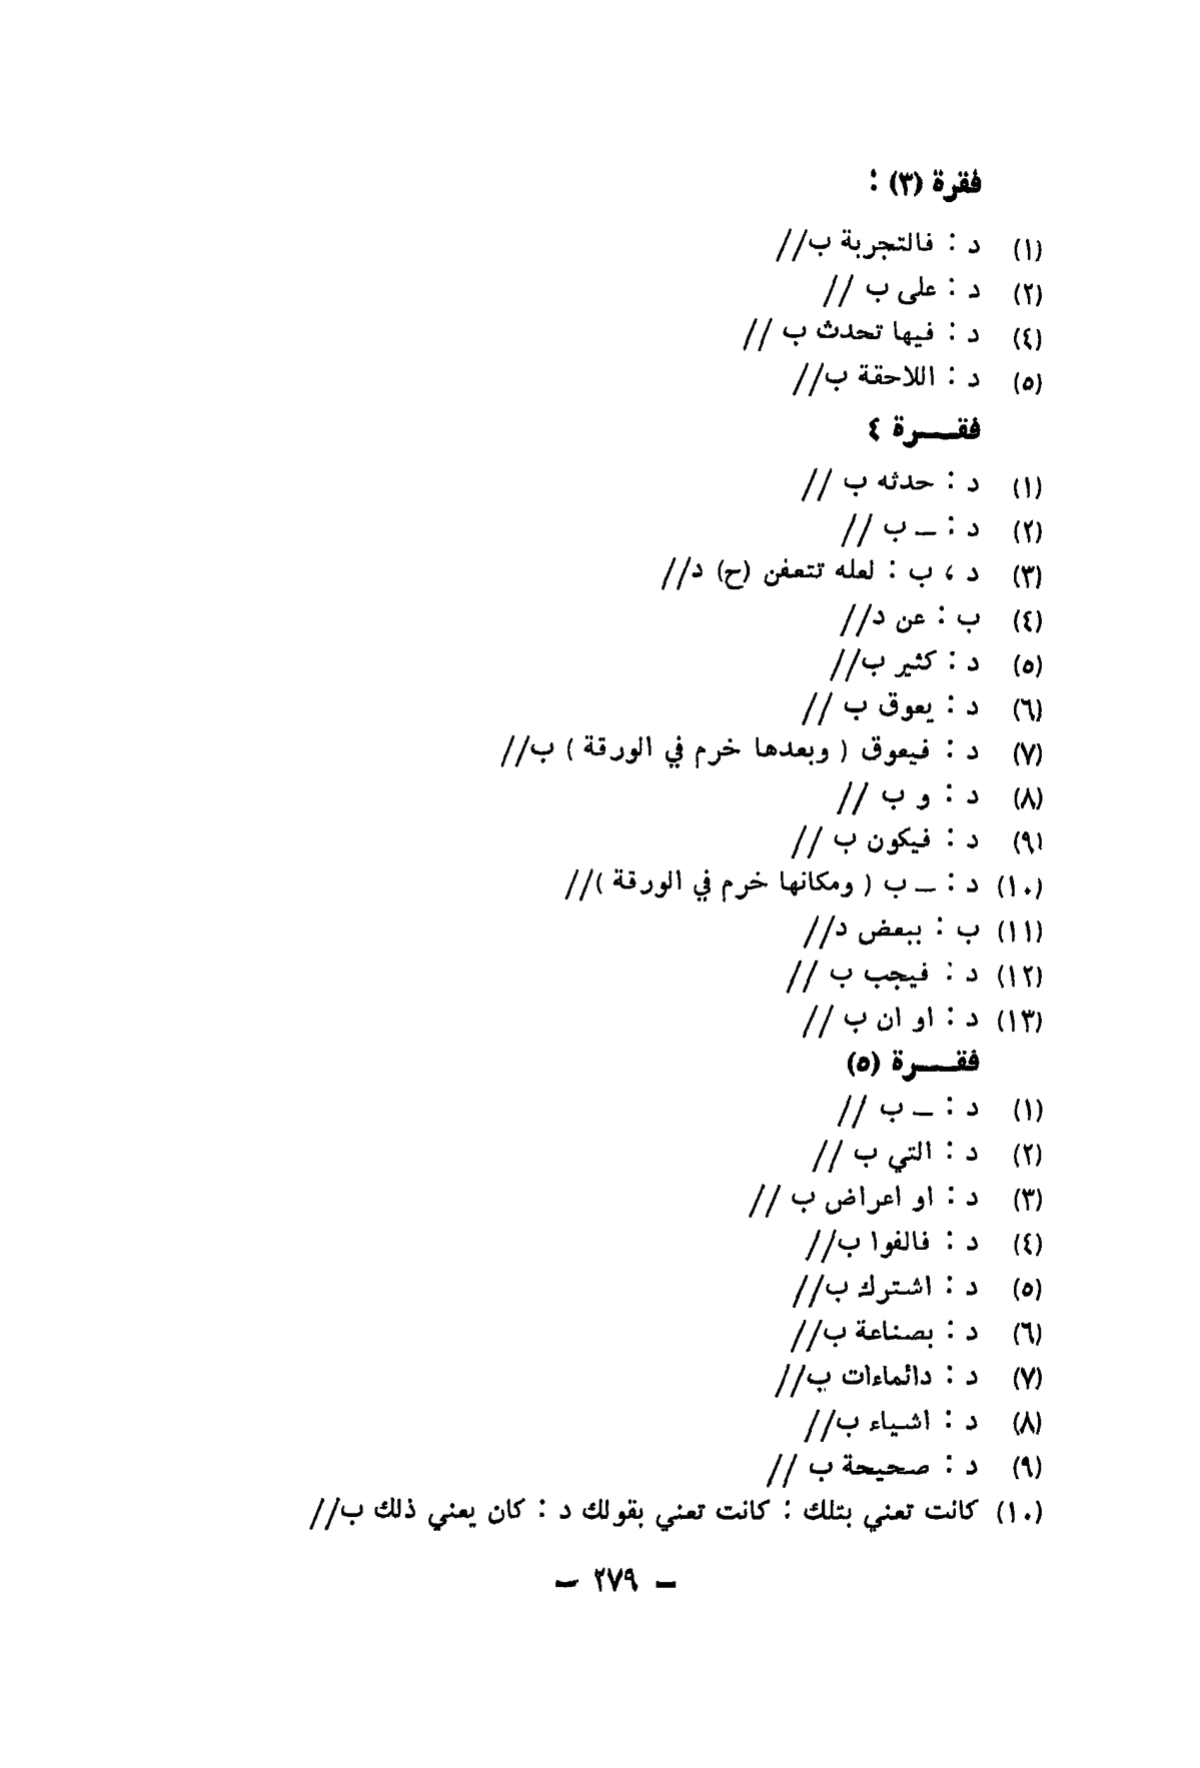 فقرة (٣) :
(١) د : فالتجربة ب//
(٢) د : على ب //
(٤) د : فيها تحدث ب //
(٥) د : اللاحقة ب//
فقـــرة ٤
(١) د : حدثه ب //
(٢) د : ـ ب //
(٣) د ، ب : لعله تتعفن (ح) د//
(٤) ب : عن د//
(٥) د : كثير ب//
(٦) د : يعوق ب //
(٧) د : فيعوق ( وبعدها خرم في الورقة ) ب//
(٨) د : و ب //
(٩) د : فيكون ب //
(١٠) د : ـ ب ( ومكانها خرم في الورقة )//
(١١) ب : ببعض د//
(١٢) د : فيجب ب //
(١٣) د : او ان ب //
فقـــرة (٥)
(١) د : ـ ب //
(٢) د : التي ب //
(٣) د : او اعراض ب //
(٤) د : فالفوا ب//
(٥) د : اشترك ب//
(٦) د : بصناعة ب//
(٧) د : دائماءات ب//
(٨) د : اشياء ب//
(٩) د : صحيحة ب //
(١٠) كانت تعني بتلك : كانت تعني بقولك د : كان يعني ذلك ب//
ـ ٢٧٩ ـ